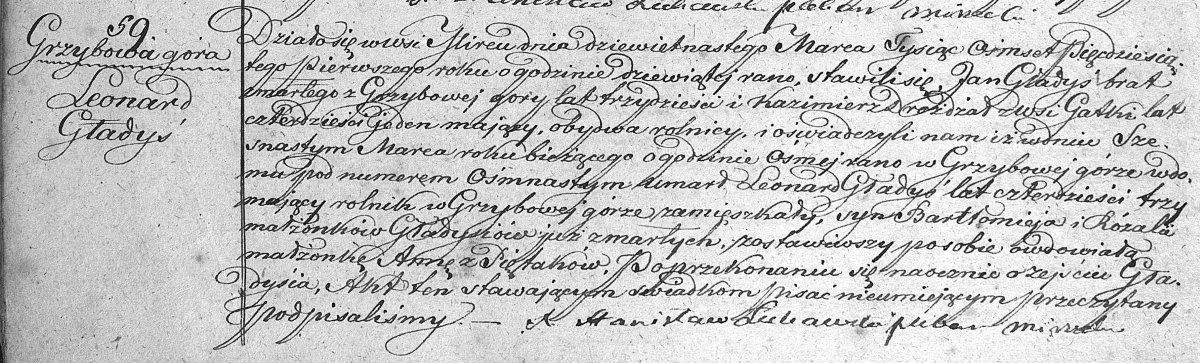 pleban
59
Grzybowa góra
Leonard
Gładyś
Działo się w wsi Mircu dnia dziewiętnastego Marca Tysiąc Ośmset Pięćdziesią-
tego Pierwszego roku o godzinie dziewiątej rano, stawili się, Jan Gładyś brat
zmarłego z Grzybowej gory lat trzydzieści i Kazimierz z wsi Gatki lat
czterdzieści jeden mający, obydwa rolnicy, i oświadczyli nam iż w dniu Sze-
snastym Marca roku bieżącego o godzinie Ośmej rano w Grzybowej górze w do-
mu pod numerem Ośmnastym umarł Leonard Gładyś lat czterdzieści trzy
mający rolnik w Grzybowej górze zamięszkały, syn Bartłomieja i Rózali
małżonków Gładysiów już zmarłych, zostawiwszy po sobie owdowiałą
małżonkę Annę z Piętaków. Po przekonaniu się naocznie o zejściu Gła-
dysia, Akt ten stawającym świadkom pisać nieumiejącym przeczytany
podpisaliśmy. — X Stanisław pleban